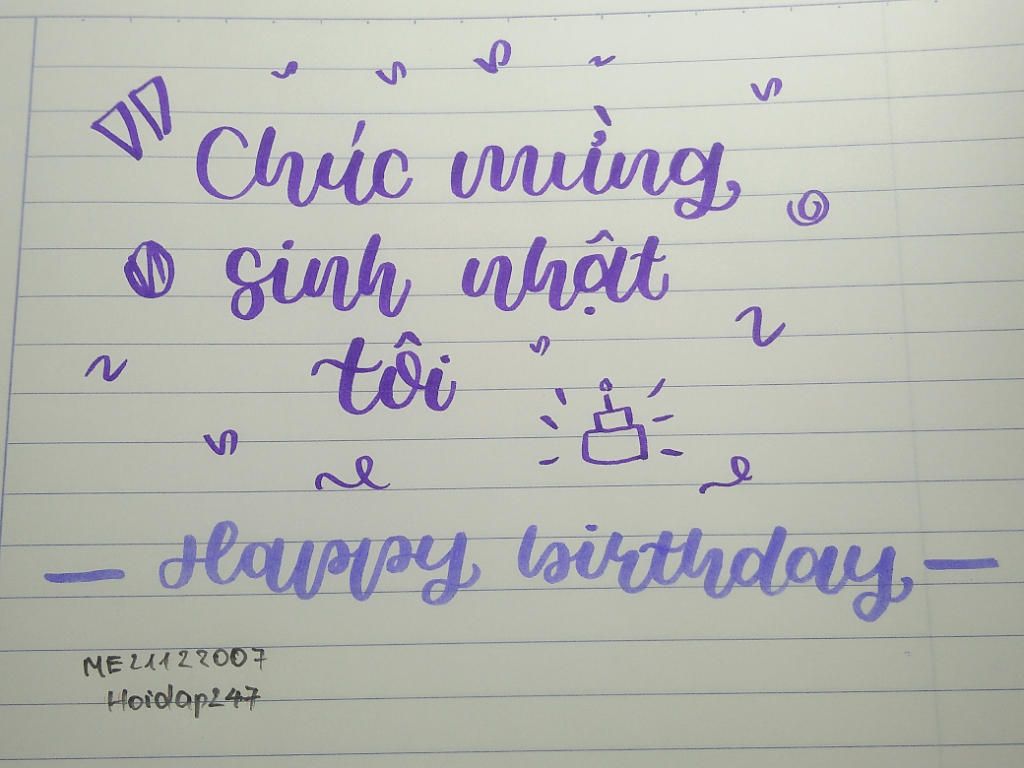 Chúc mừng
sinh nhật
tôi
Happy birthday
ME21122007
Hoidap247